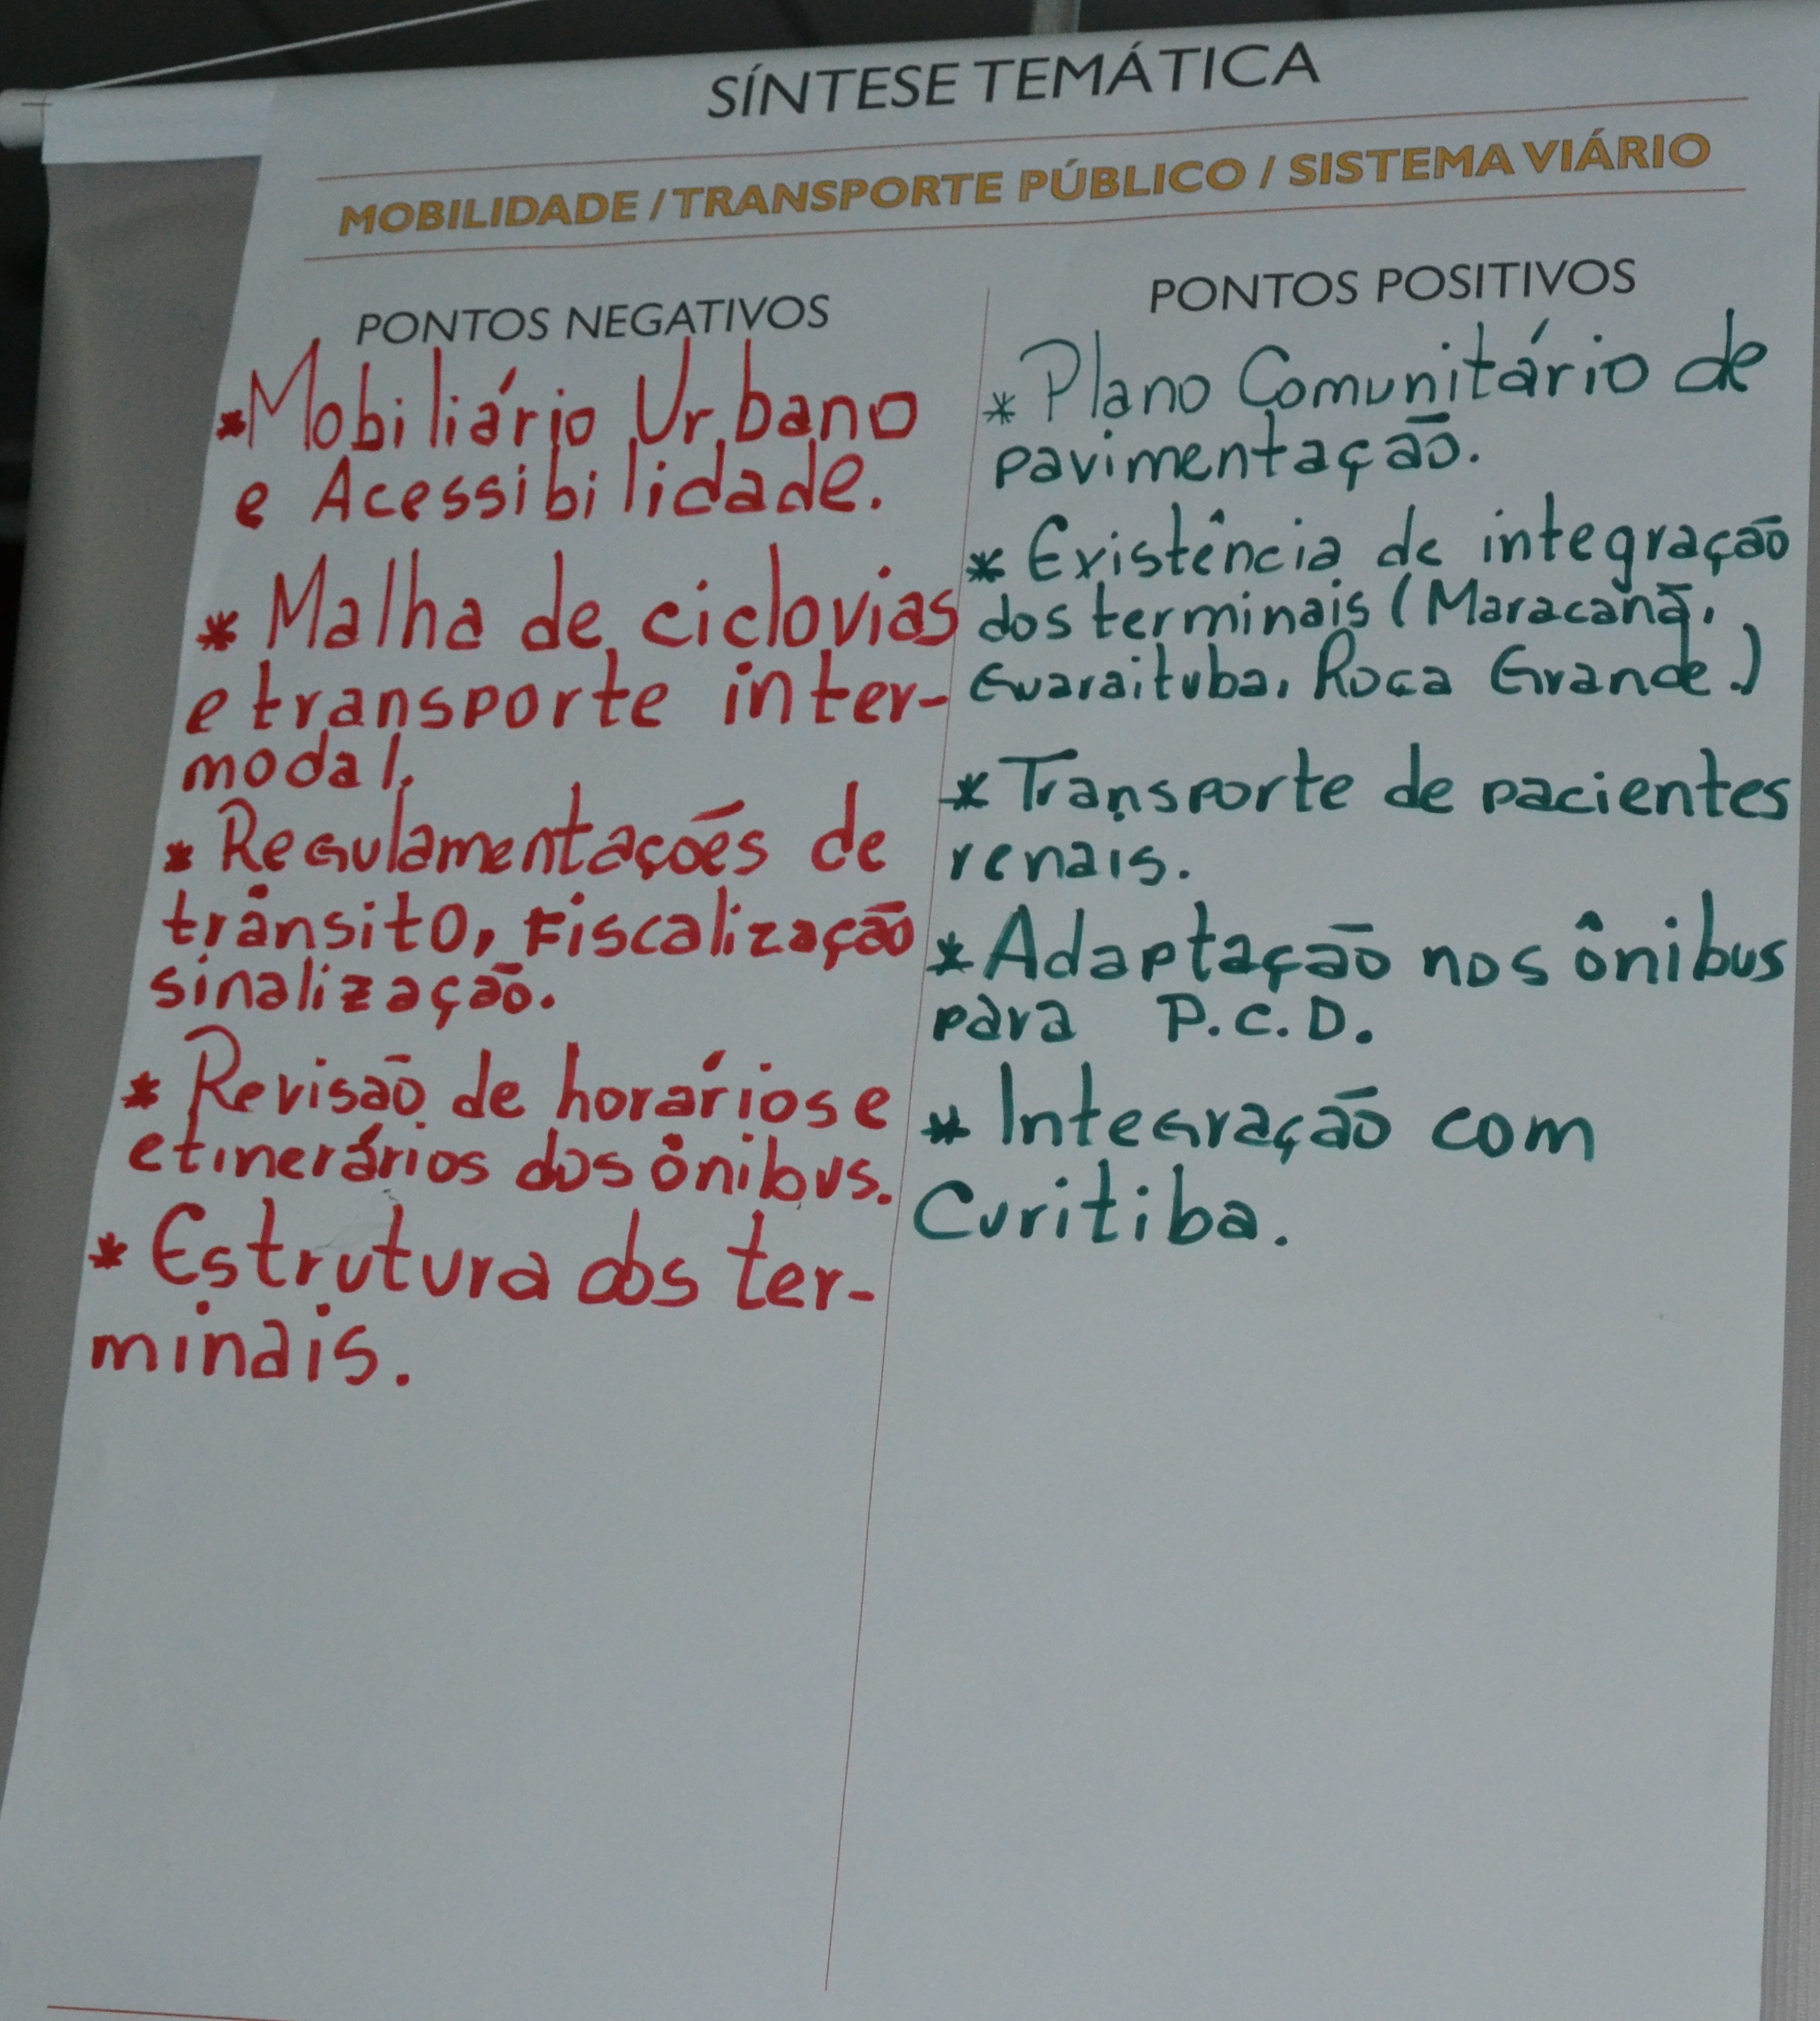 SÍNTESE TEMÁTICA
MOBILIDADE / TRANSPORTE PÚBLICO / SISTEMA VIÁRIO
PONTOS NEGATIVOS
* Mobiliário Urbano
e Acessibilidade.
* Malha de ciclovias
e transporte inter-
modal.
* Regulamentações de
trânsito, Fiscalização
sinalização.
* Revisão de horários e
etinerários dos ônibus.
* Estrutura dos ter-
minais.
PONTOS POSITIVOS
* Plano Comunitário de
pavimentação.
* Existência de integração
dos terminais (Maracanã,
Guaraituba, Roça Grande.)
* Transporte de pacientes
renais.
* Adaptação nos ônibus
para P.C.D.
* Integração com
Curitiba.